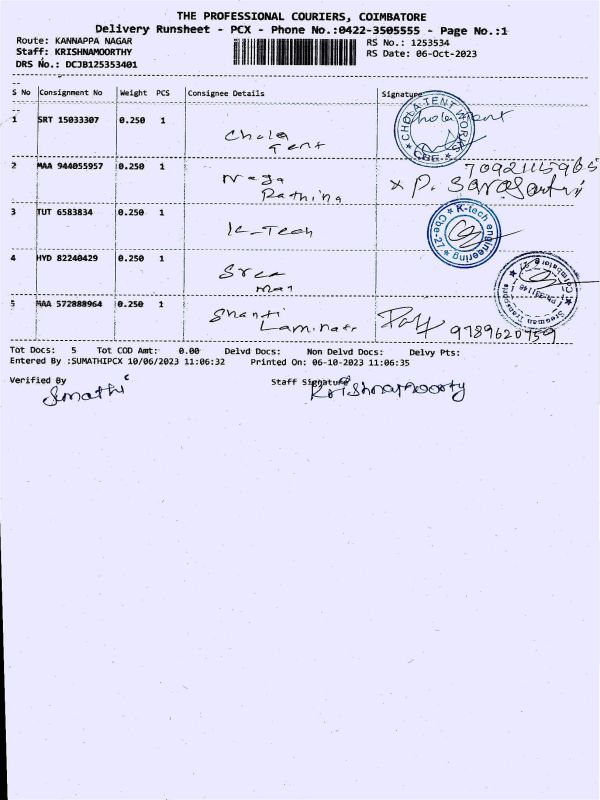 THE PROFESSIONAL COURIERS, COIMBATORE
Delivery Runsheet - PCX - Phone No.:0422-3505555 - Page No.:1
Route: KANNAPPA NAGAR RS No.: 1253534
Staff: KRISHNAMOORTHY RS Date: 06-Oct-2023
DRS No.: DCJB125353401
S No Consignment No Weight PCS Consignee Details Signature
1 SRT 15033307 0.250 1 Chola Tent Chola Tent
CHOLA TENT WORKS CBE
2 MAA 944055957 0.250 1 Naga Rathina 7092115965
x P. Saraswathi
3 TUT 6583834 0.250 1 K-Tech
K-tech engineering Cbe-27
4 HYD 82240429 0.250 1 Sree man
Sreeman Transports
5 MAA 572888964 0.250 1 Shanti Laminate 9789620759
Tot Docs: 5 Tot COD Amt: 0.00 Delvd Docs: Non Delvd Docs: Delvy Pts:
Entered By :SUMATHIPCX 10/06/2023 11:06:32 Printed On: 06-10-2023 11:06:35
Verified By Staff Signature
Sumathi Krishnamoorty